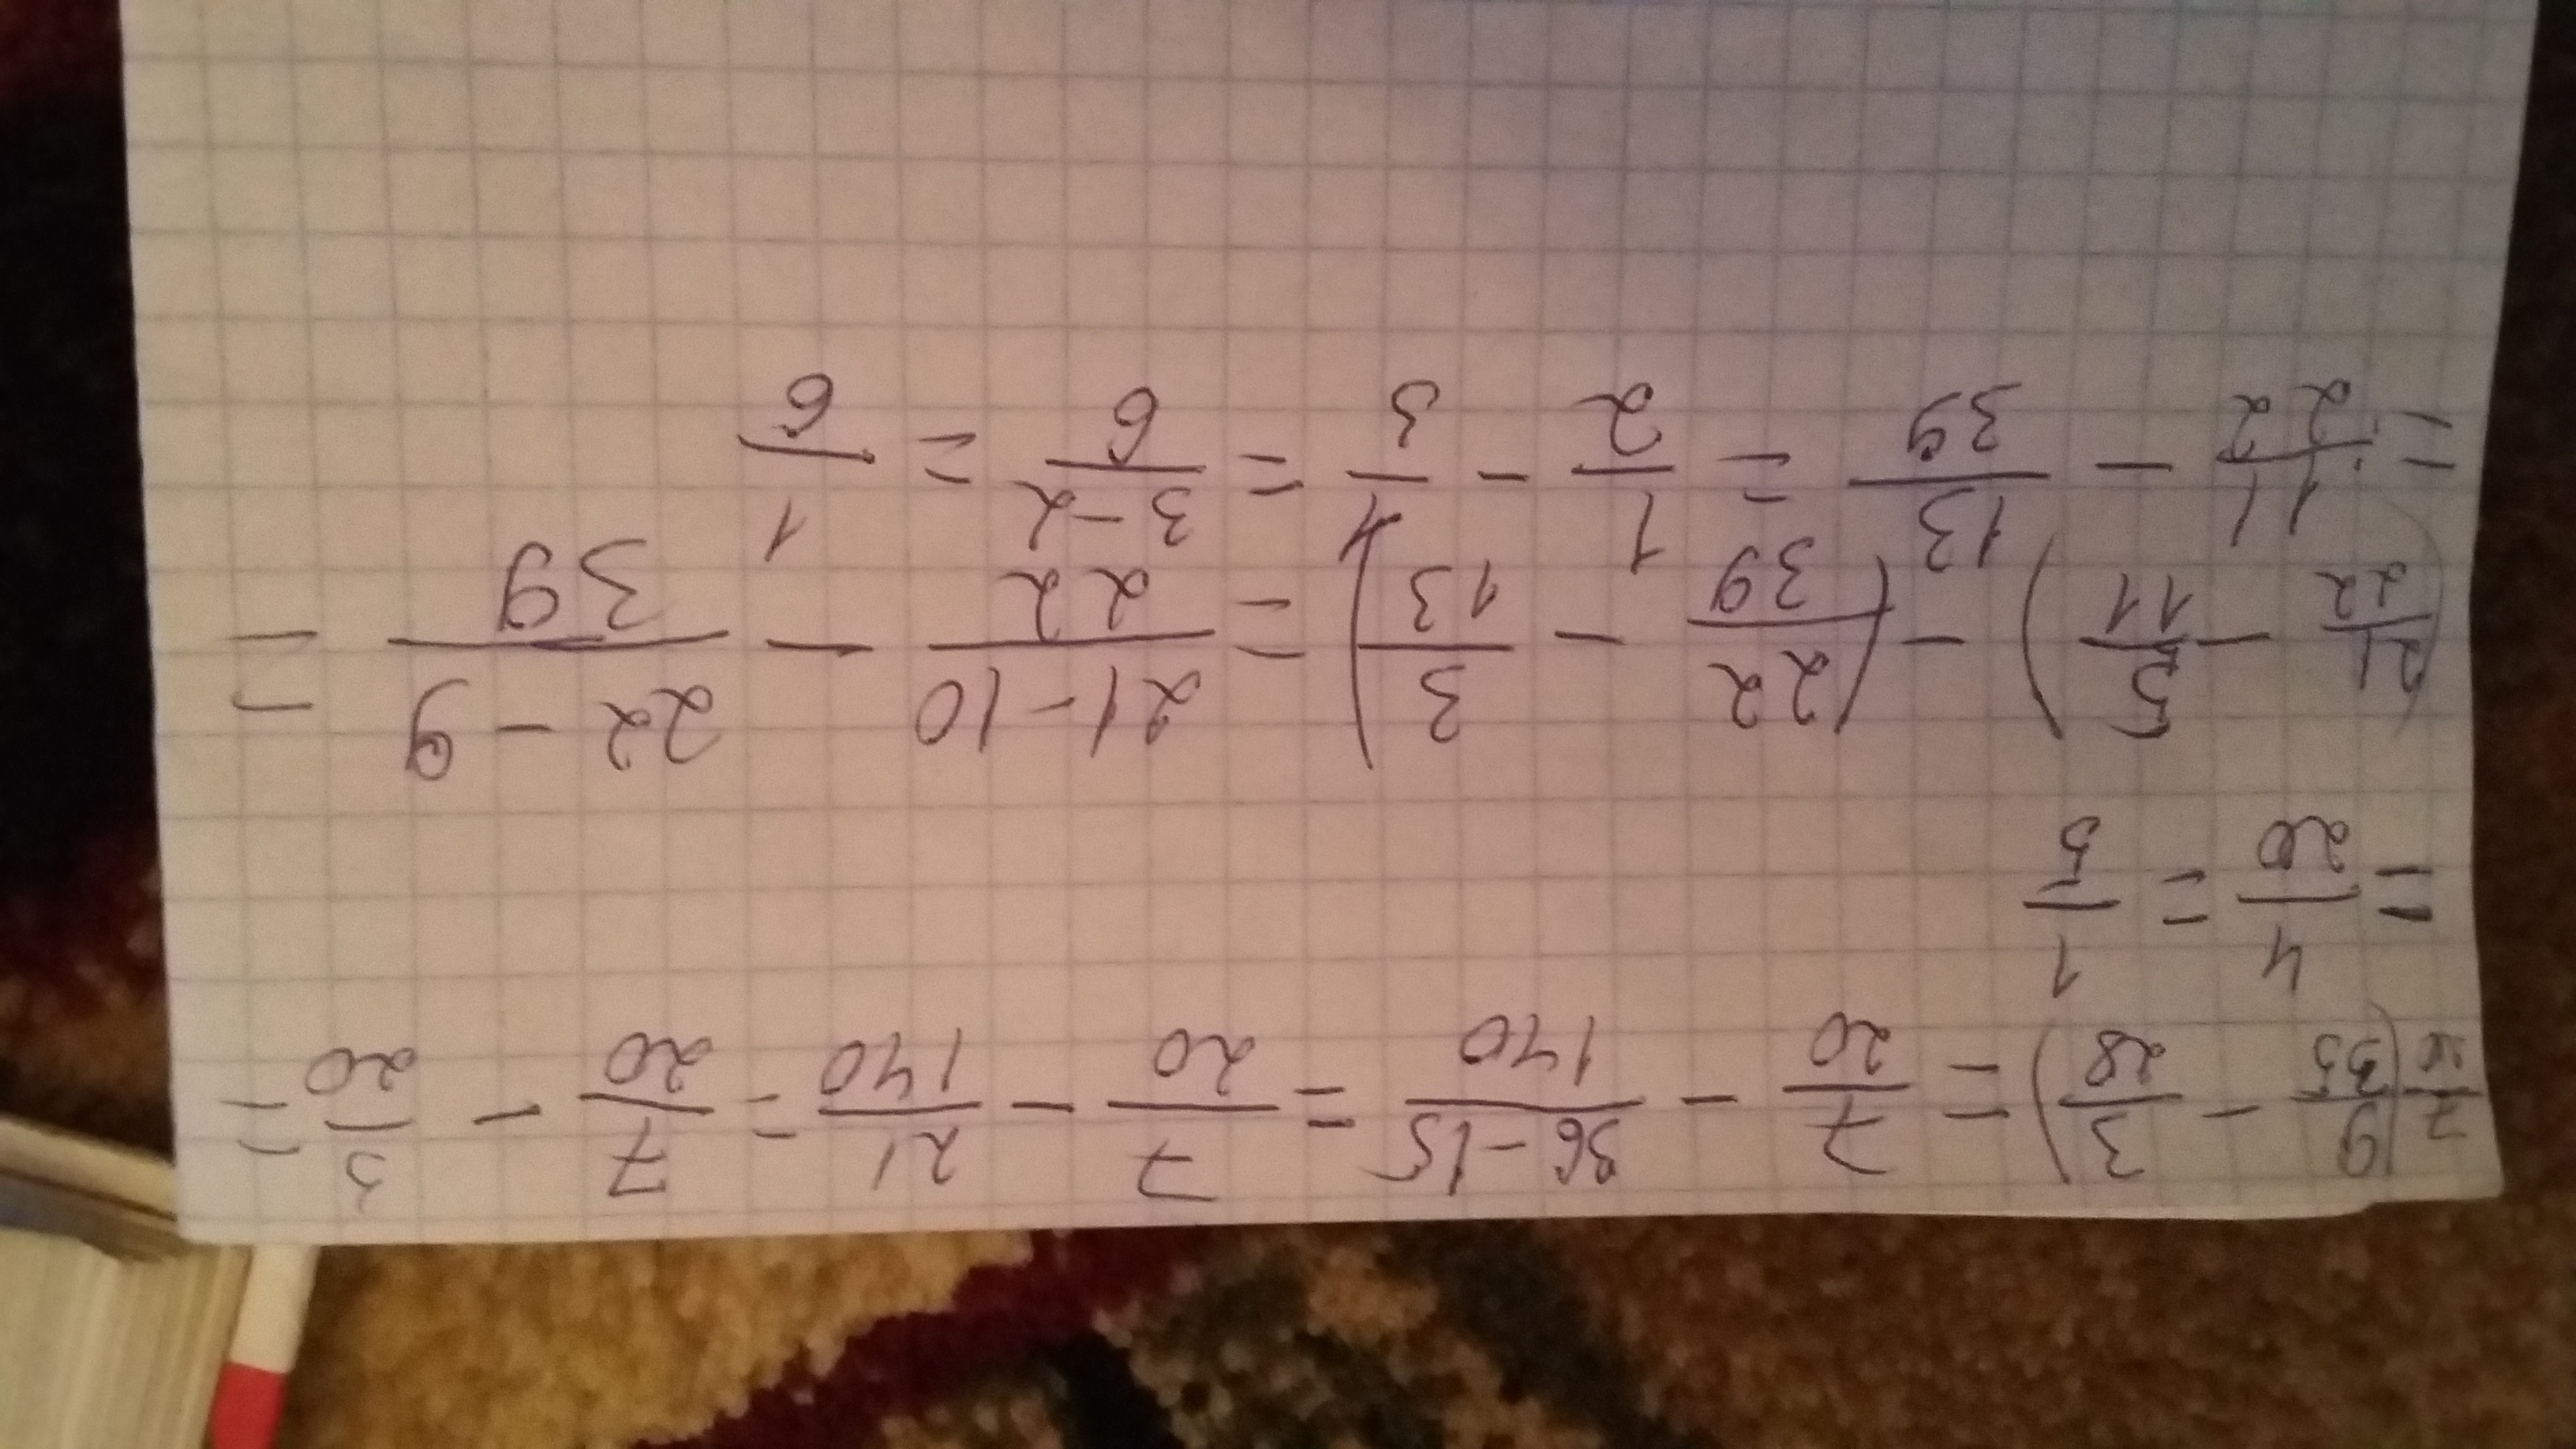 7/20 - (9/35 - 3/28) = 7/20 - 36-15/140 = 7/20 - 21/140 = 7/20 - 3/20 =
= 4/20 = 1/5
(21/22 - 5/11) - (22/39 - 3/13) = 21-10/22 - 22-9/39 =
= 11/22 - 13/39 = 1/2 - 1/3 = 3-2/6 = 1/6